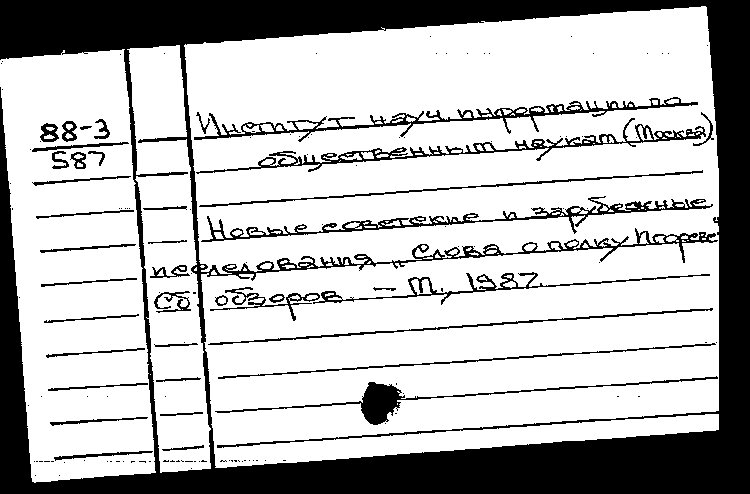 88-3
587
Институт науч. информации по
общественным наукам (Москва).
Новые советские и зарубежные
исследования „Слова о полку Игореве“
Сб. обзоров. – М., 1987.